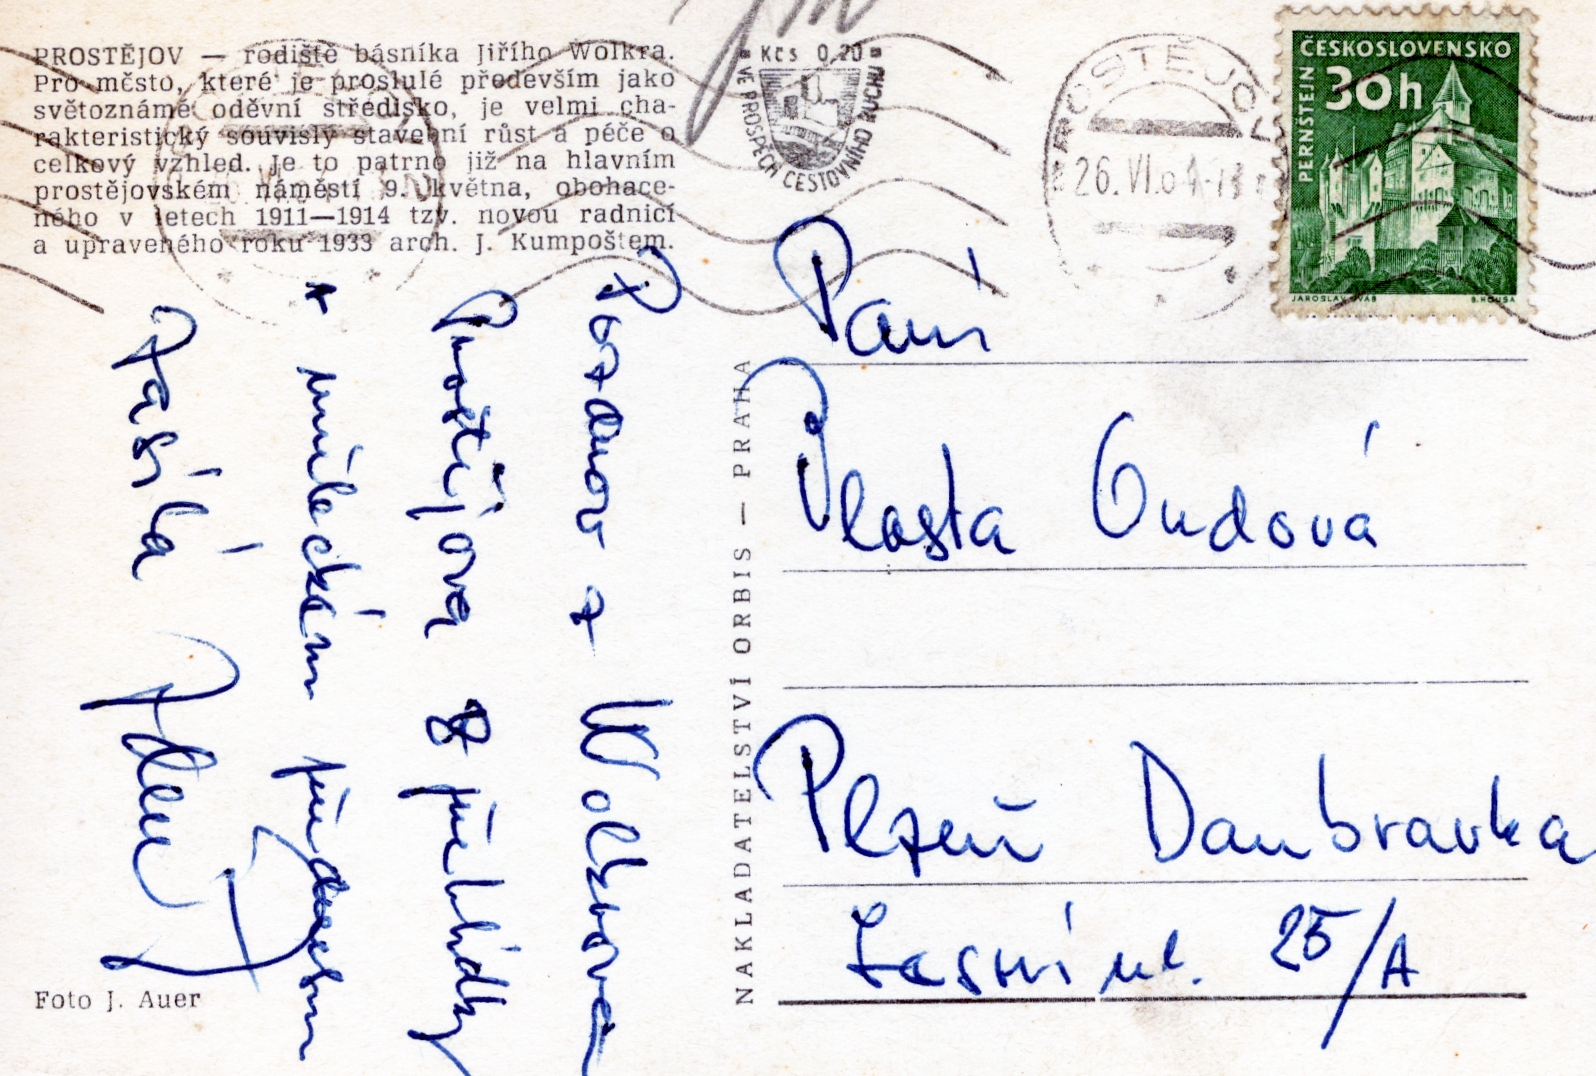 PROSTĚJOV — rodiště básníka Jiřího Wolkra.
Pro město, které je proslulé především jako
světoznámé oděvní středisko, je velmi cha-
rakteristický souvislý stavební růst a péče o
celkový vzhled. Je to patrno již na hlavním
prostějovském náměstí 9. května, obohace-
ného v letech 1911—1914 tzv. novou radnicí
a upraveného roku 1933 arch. J. Kumpoštem.
Kčs 0,20
VE PROSPĚCH CESTOVNÍHO RUCHU
PROSTĚJOV
26.VI.64
ČESKOSLOVENSKO
30h
PERNŠTEJN
JAROSLAV ŠVÁB
B. HOUSA
Pozdrav z Wolkrova
Prostějova z přehlídky
s uměleckým přednesem
zasílá
Paní
Vlasta Oudová
Plzeň Doubravka
Lesní ul. 25/A
NAKLADATELSTVÍ ORBIS — PRAHA
Foto J. Auer